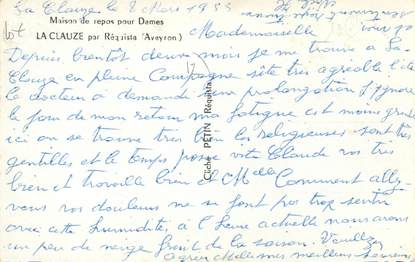 La Clauze le 2 Mars 1955
Maison de repos pour Dames
LA CLAUZE par Réquista (Aveyron)
Mademoiselle
Depuis bientôt deux mois je me trouve a La
Clauze en pleine Campagne site tres agreable l'été
le docteur a demandé une prolongation J'ignore
le jour de mon retour ma fatigue est moins grande
ici on se trouve tres bien les religieuses sont tres
gentilles et le temps passe vite Claude va tres
bien et travaille bien et Melle Comment allez
vous vos douleurs ne se font pas trop sentir
avec cette humidité, a l'heure actuelle nous avons
un peu de neige fruit de la saison. Veuillez
agreer Melle mes meilleurs
Cliché PETIN Réquista